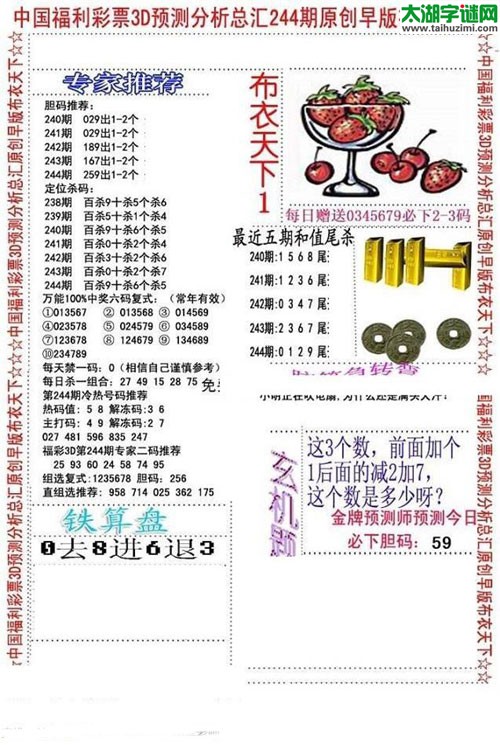 中国福利彩票3D预测分析总汇244期原创早版
太湖字谜网
www.taihuzimi.com
专家推荐
胆码推荐：
240期 029出1-2个
241期 029出1-2个
242期 189出1-2个
243期 167出1-2个
244期 259出1-2个
定位杀码：
238期 百杀9十杀5个杀6
239期 百杀5十杀1个杀4
240期 百杀9十杀6个杀4
241期 百杀0十杀2个杀7
242期 百杀1十杀4个杀6
243期 百杀0十杀6个杀7
244期 百杀0十杀7个杀5
万能100%中奖六码复式：（常年有效）
①013567 ② 013568 ③ 014569
④023578 ⑤ 024579 ⑥ 034589
⑦123678 ⑧ 124679 ⑨ 134689
⑩234789
每天禁一码：0（相信自己谨慎参考）
每日杀一组合：27 49 15 28 75
第244期冷热号码推荐
热码值：5 8 解冻码:3 6
主打码：4 9 解冻码：2 7
027 481 596 835 247
福彩3D第244期专家二码推荐
25 93 60 24 58 74 95
组选复式:1235678 胆码：256
直组选推荐：958 714 025 362 175
铁算盘
0去8进6退3
布衣天下1
每日赠送0345679必下2-3码
最近五期和值尾杀
240期:1 5 6 8 尾
241期:1 2 3 6 尾
242期:0 3 4 7 尾
243期:2 3 6 7 尾
244期:0 1 2 9 尾
玄机题
这3个数，前面加个
1后面的减2加7，
这个数是多少呀？
金牌预测师预测今日
必下胆码： 59
☆中国福利彩票3D预测分析总汇原创早版布衣天下☆